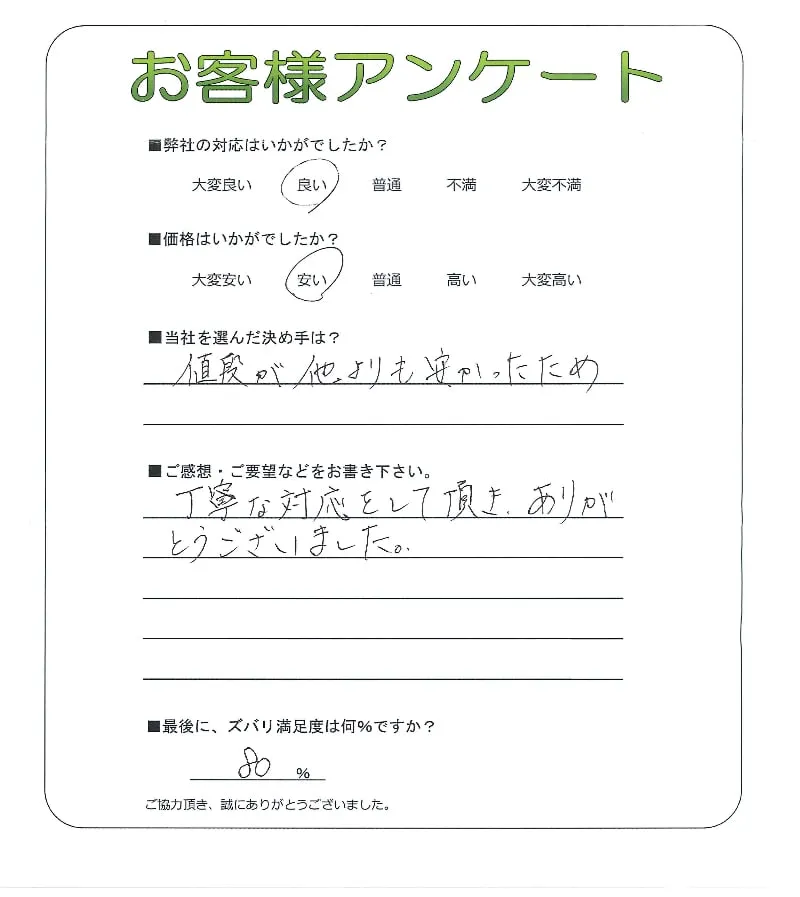 お客様アンケート
■弊社の対応はいかがでしたか？
大変良い 良い 普通 不満 大変不満
■価格はいかがでしたか？
大変安い 安い 普通 高い 大変高い
■当社を選んだ決め手は？
値段が他よりも安かったため
■ご感想・ご要望などをお書き下さい。
丁寧な対応をして頂き、ありが
とうございました。
■最後に、ズバリ満足度は何％ですか？
80 %
ご協力頂き、誠にありがとうございました。